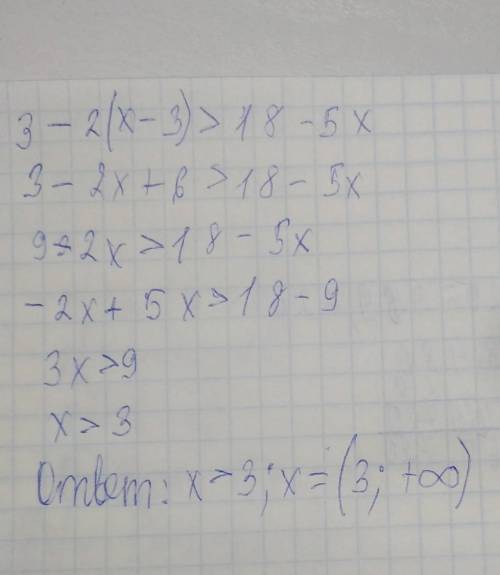 3 - 2(x - 3) > 18 - 5x
3 - 2x + 6 > 18 - 5x
9 - 2x > 18 - 5x
-2x + 5x > 18 - 9
3x > 9
x > 3
Ответ: x > 3; x = (3; +∞)